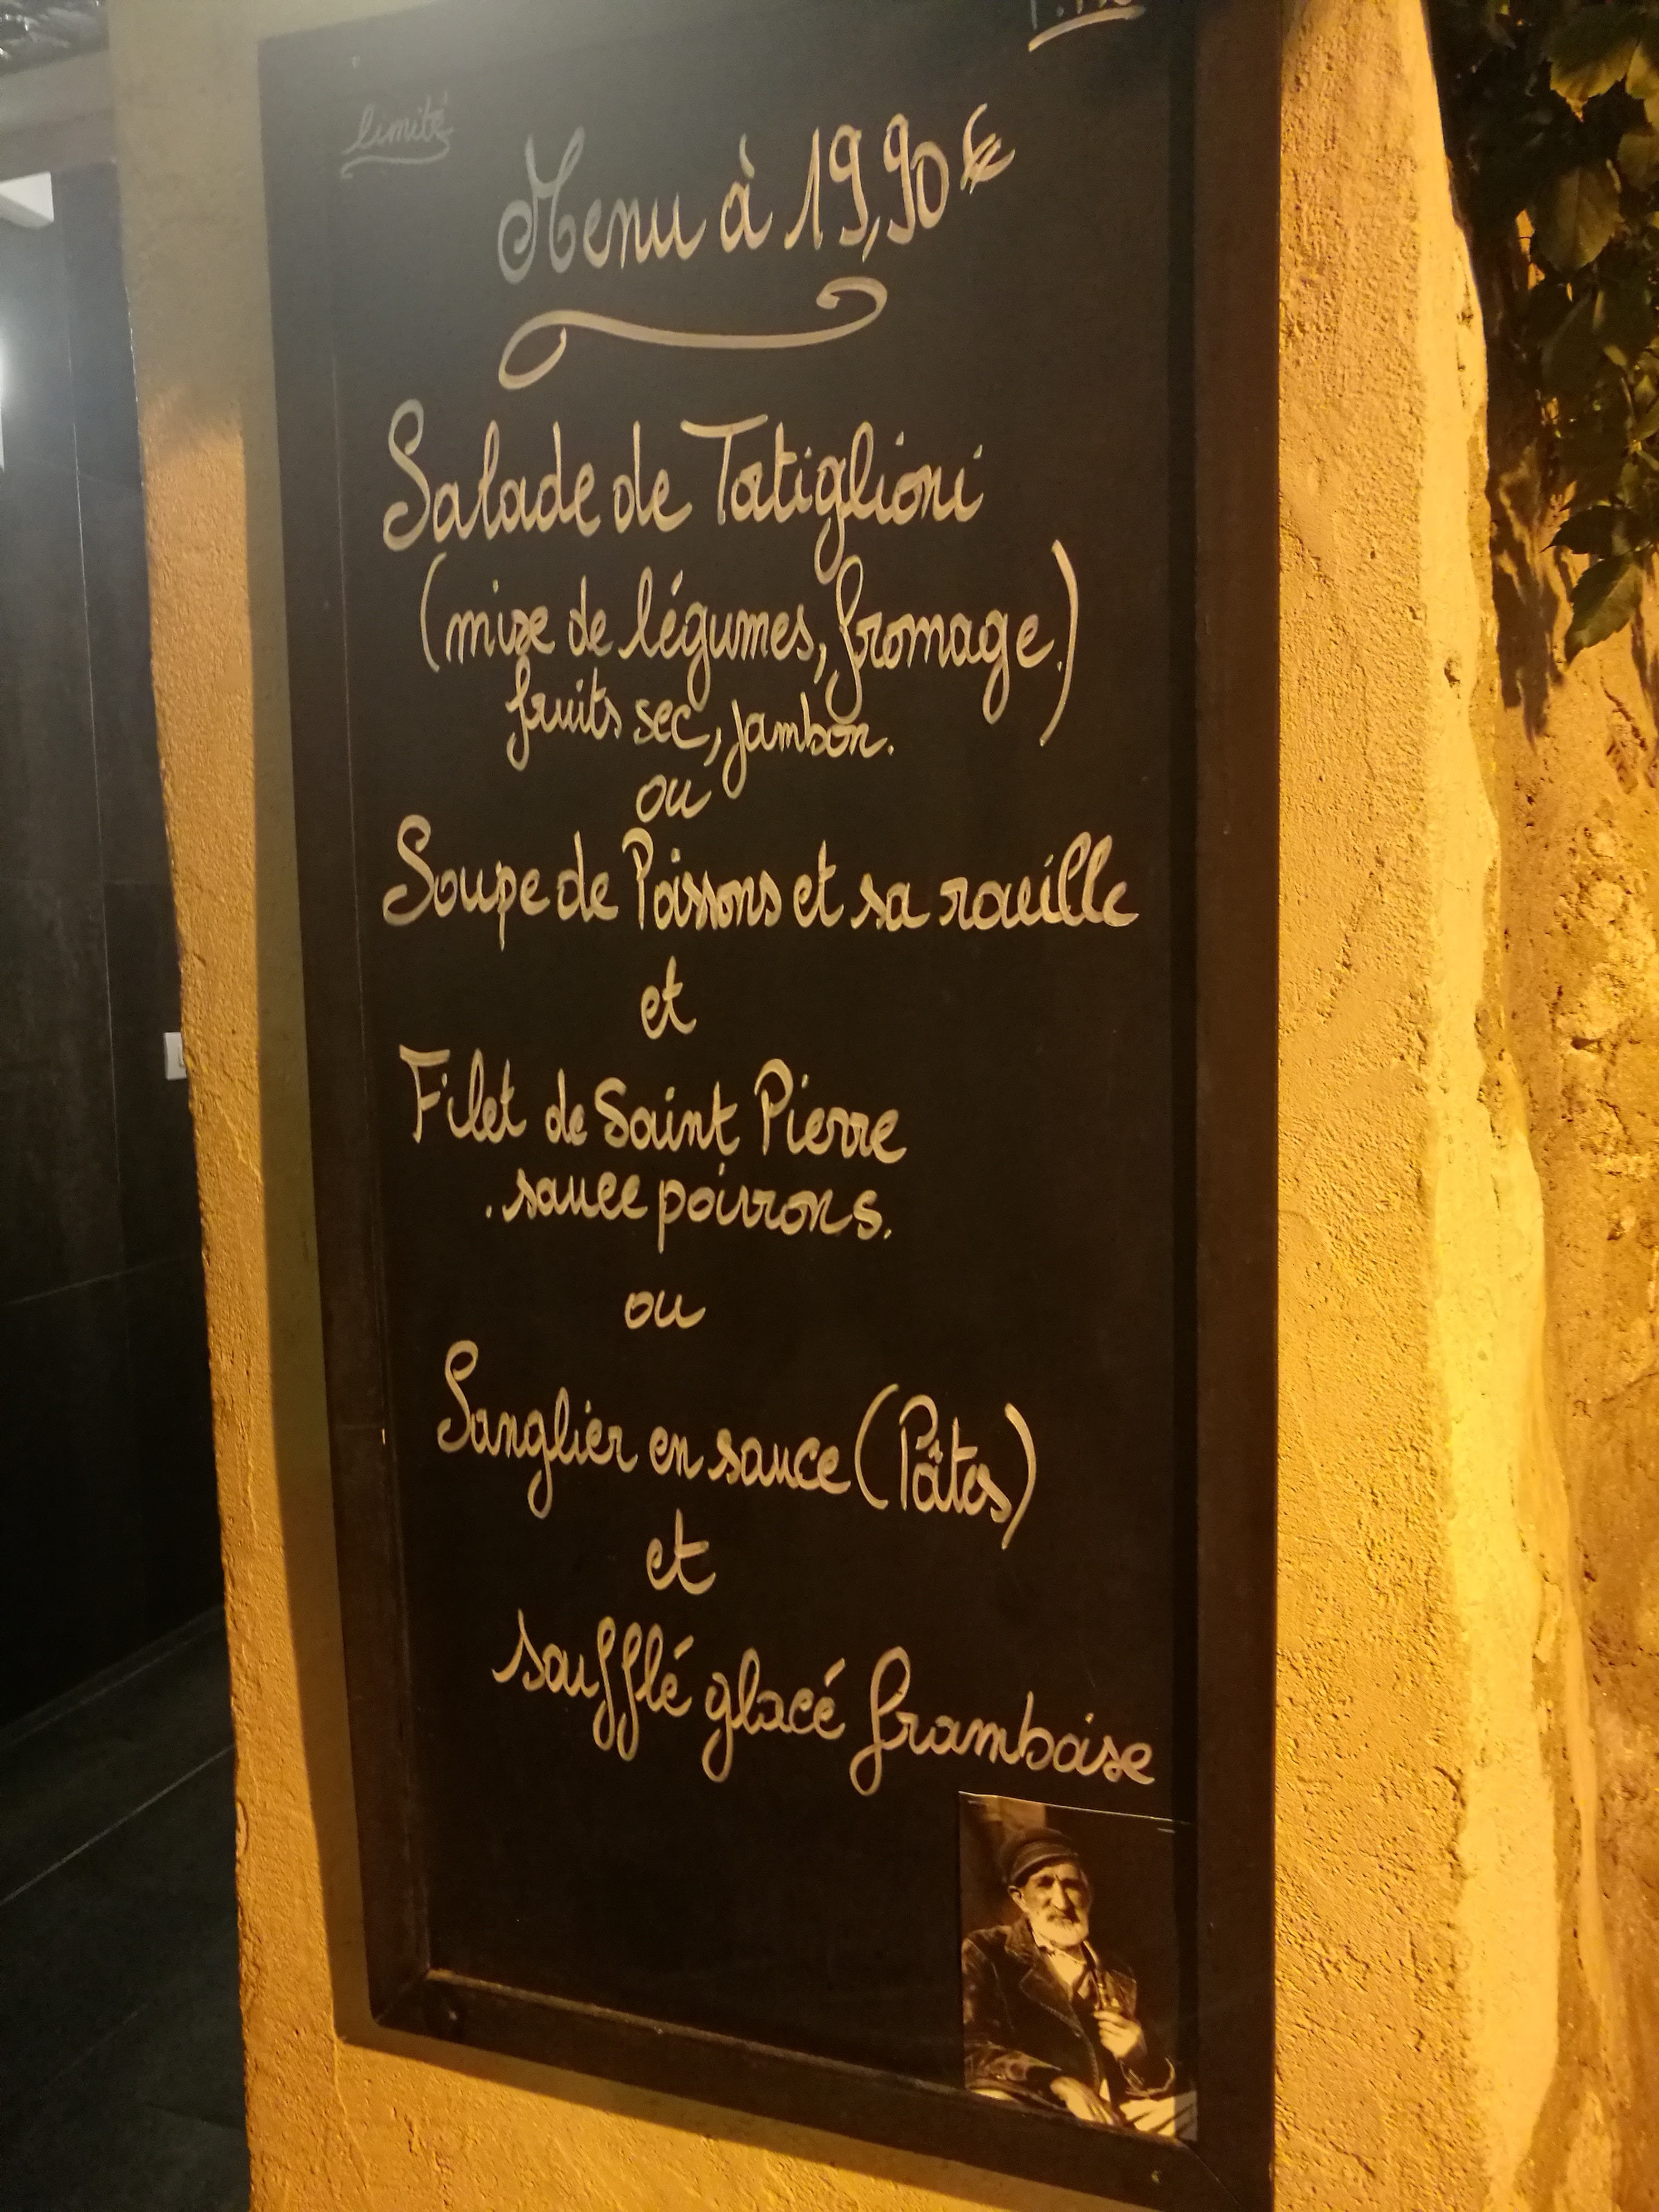 limité
Menu à 19,90€
Salade de Tatiglioni
(mixe de légumes, fromage.)
fruits sec, jambon.
ou
Soupe de Poissons et sa rouille
et
Filet de Saint Pierre
.sauce poivrons.
ou
Sanglier en sauce (Pâtes)
et
soufflé glacé framboise